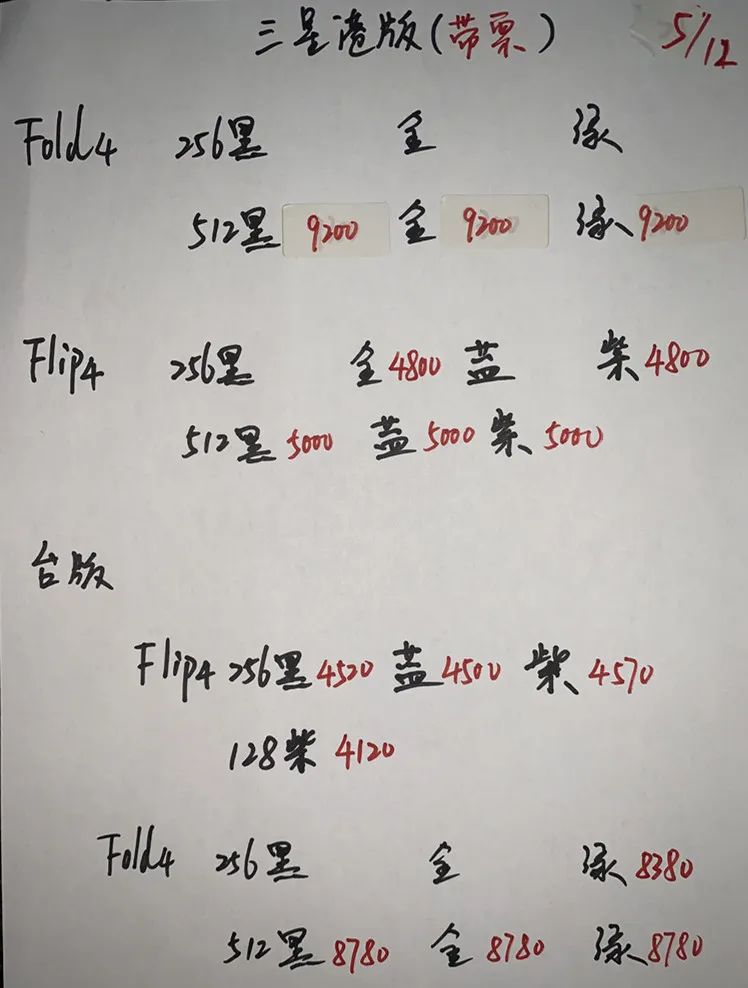 三星港版(带票) 5/12
Fold4 256黑 金 绿
512黑 9200 金 9200 绿 9200
Flip4 256黑 金 4800 蓝 紫 4800
512黑 5000 蓝 5000 紫 5000
台版
Flip4 256黑 4520 蓝 4500 紫 4570
128紫 4120
Fold4 256黑 金 绿 8380
512黑 8780 金 8780 绿 8780